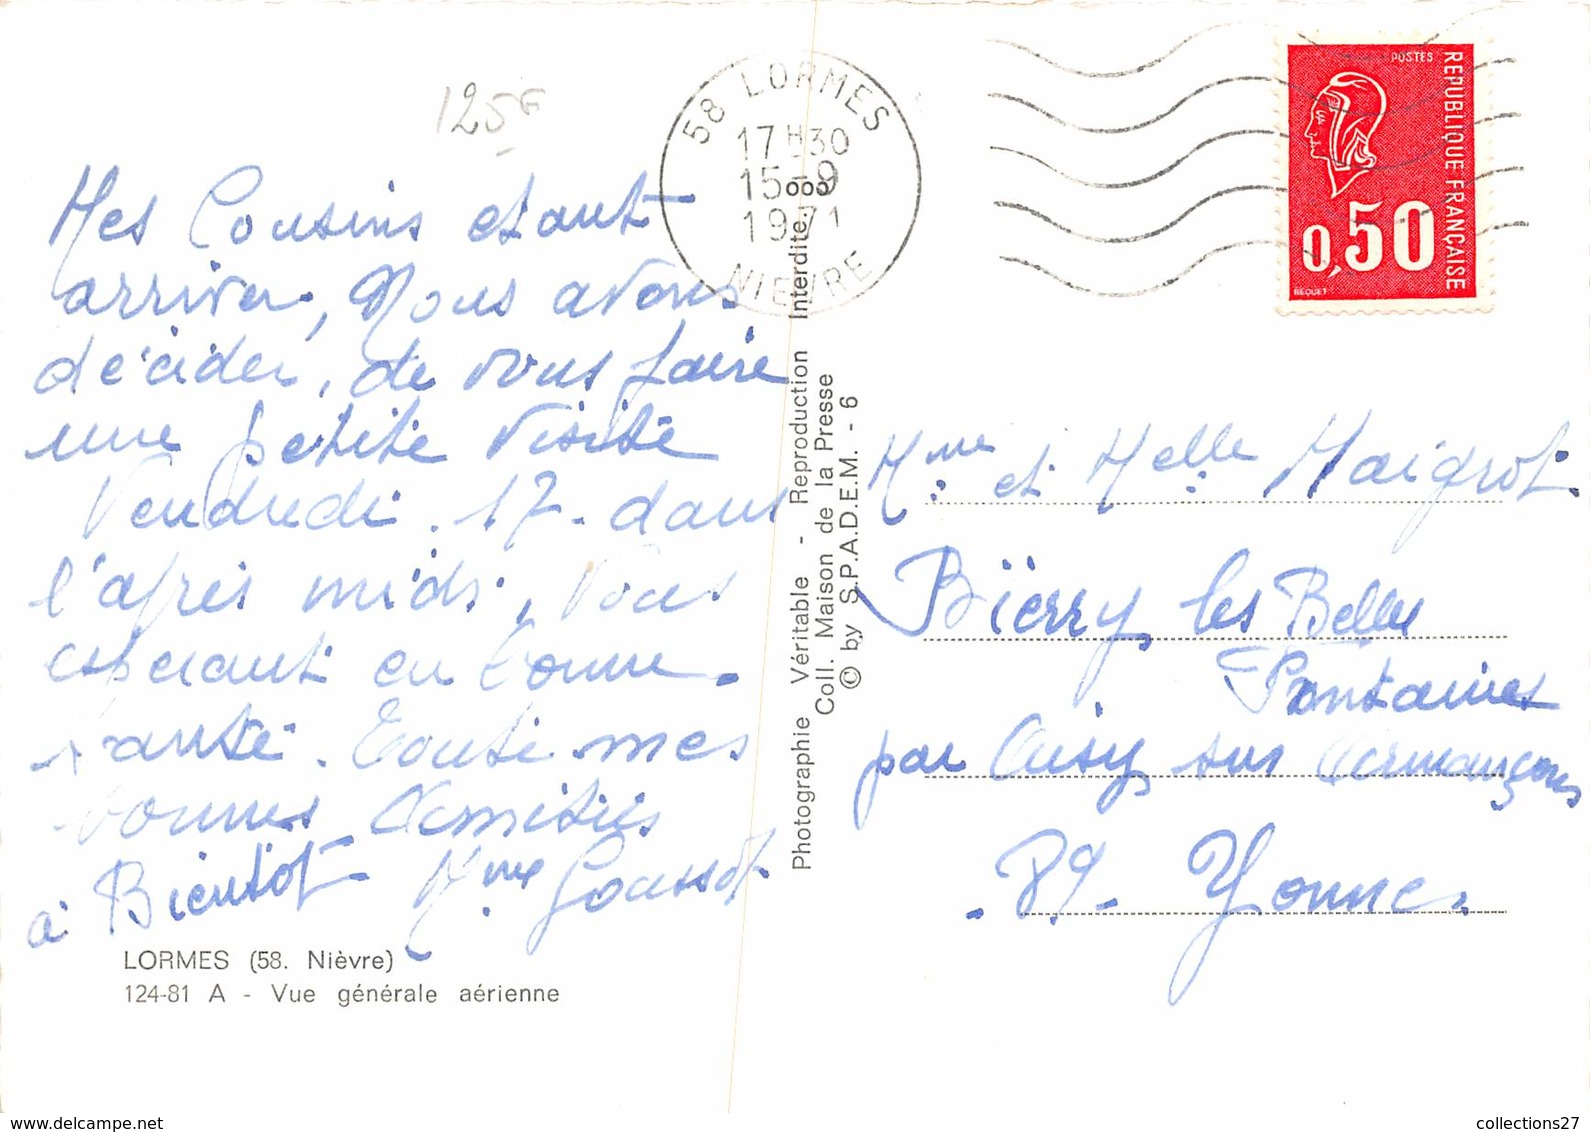 125F
Mes Cousins etant
arriver, Nous avons
décider, de vous faire
une petite Visite
Vendredi. 17. dans
l'après midi, Vous
esperant en bonne.
santé. Toute mes
bonnes Amitiés
à Bientot Mme Goussot.
LORMES (58. Nièvre)
124-81 A - Vue générale aérienne
58 LORMES
17H30
15-9
1971
NIEVRE
Photographie Véritable - Reproduction Interdite.
Coll. Maison de la Presse
© by S.P.A.D.E.M. - 6
POSTES
REPUBLIQUE FRANÇAISE
0,50
BEQUET
Mme et Melle Maigrot.
Bïerry les Belles
Fontaines
par Aisy sur Armançons
. 89 - Yonne.
collections27